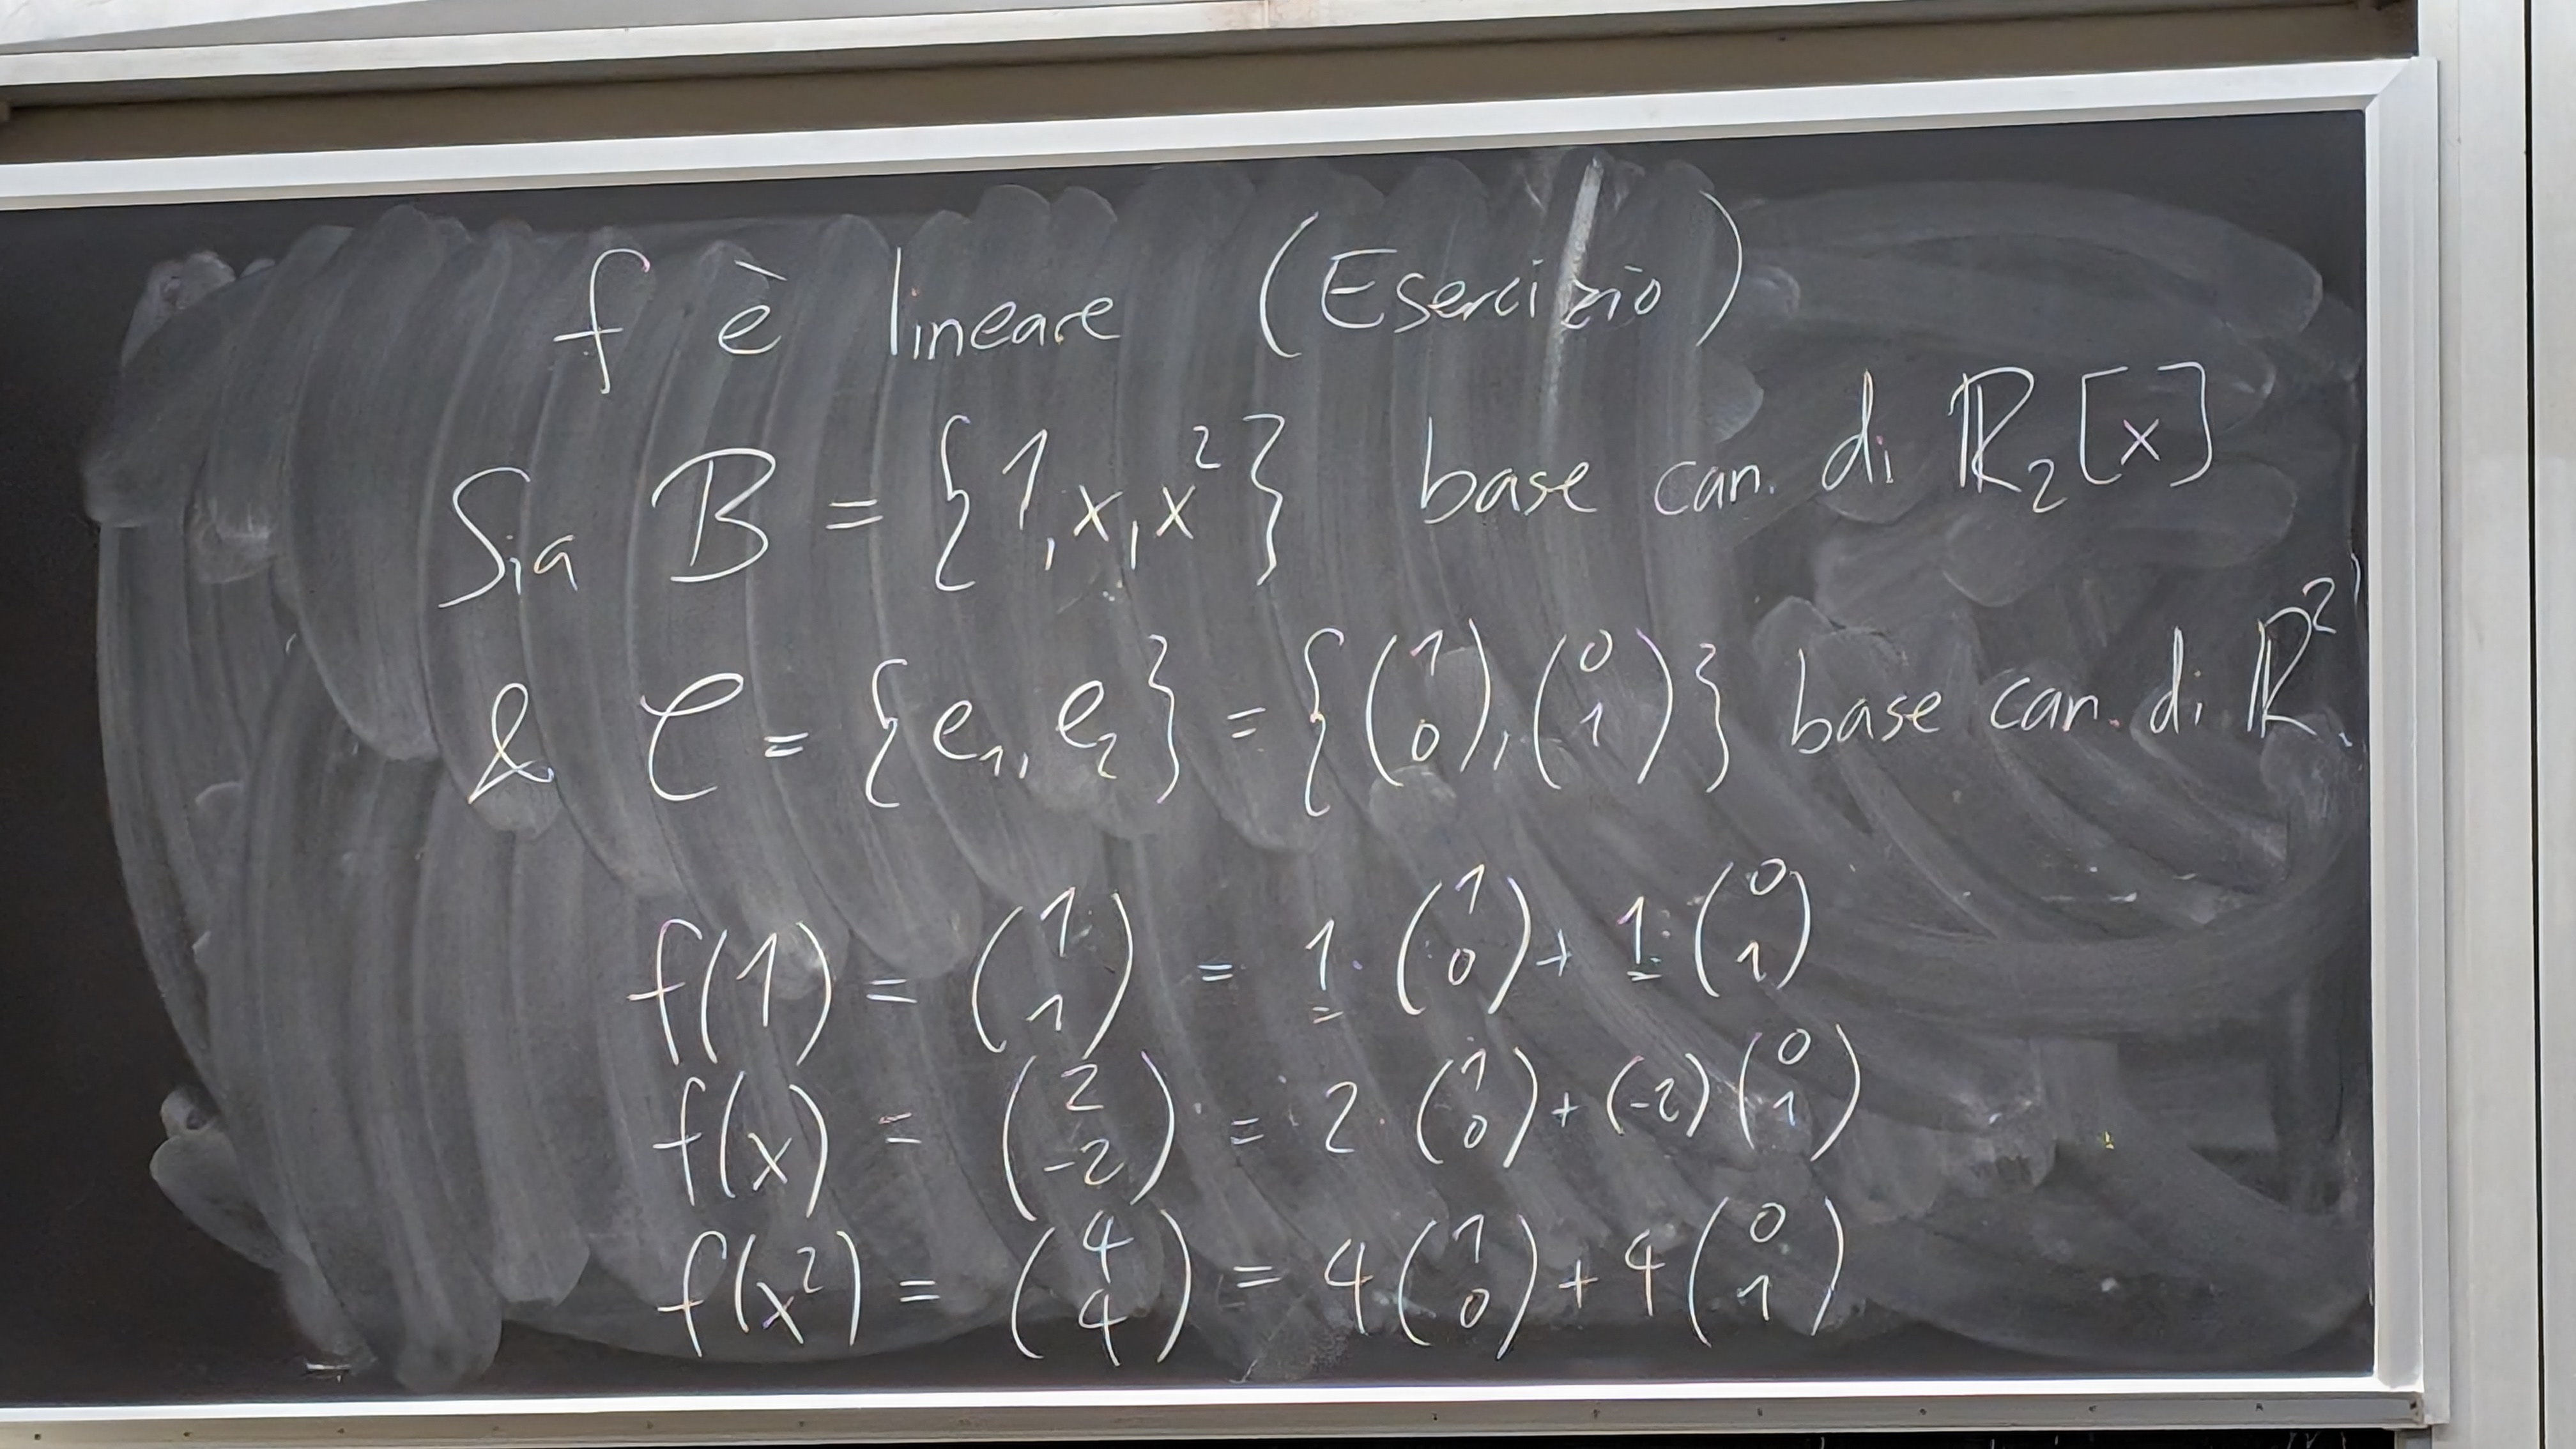 f è lineare (Esercizio)
Sia B = {1, x, x²} base can. di ℝ₂[x]
& C = {e₁, e₂} = {(1 0), (0 1)} base can. di ℝ².
f(1) = (1 1) = 1 · (1 0) + 1 · (0 1)
f(x) = (2 -2) = 2 · (1 0) + (-2) (0 1)
f(x²) = (4 4) = 4 (1 0) + 4 (0 1)